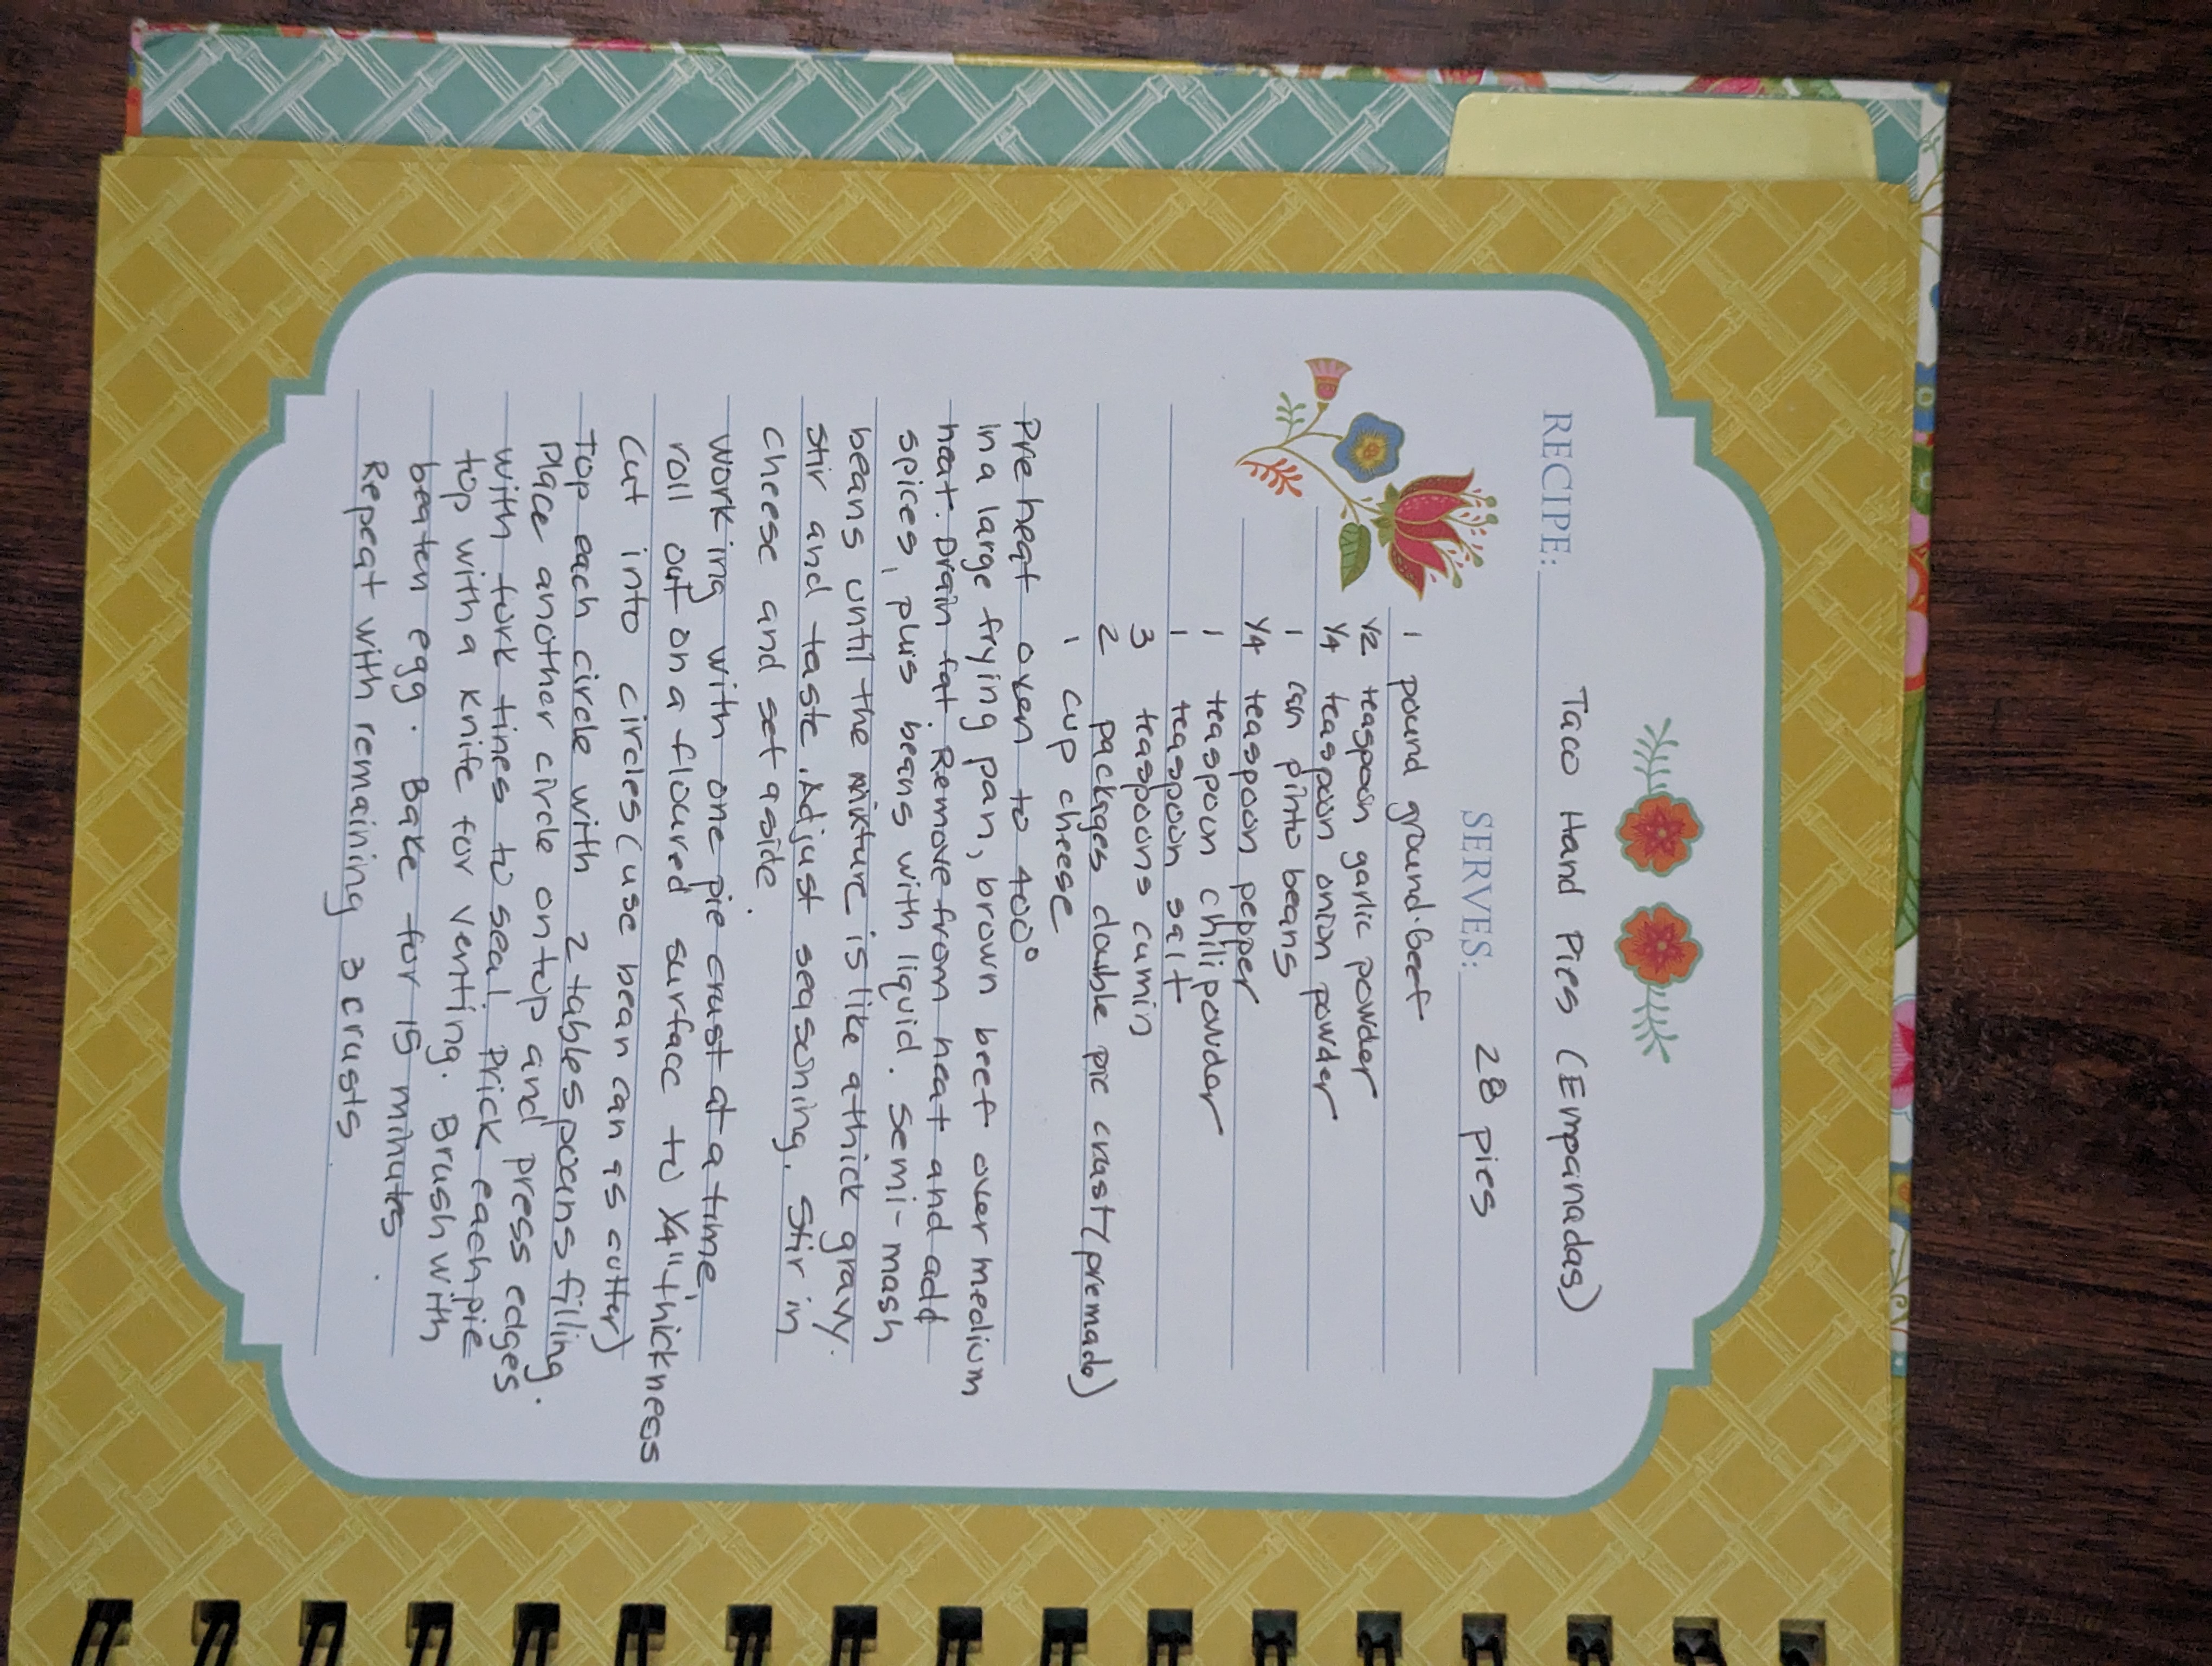 RECIPE: Taco Hand Pies (Empanadas)
SERVES: 28 pies
1 pound ground beef
1/2 teaspoon garlic powder
1/4 teaspoon onion powder
1 can pinto beans
1/4 teaspoon pepper
1 teaspoon chili powder
1 teaspoon salt
3 teaspoons cumin
2 packages double pie crust (premade)
1 cup cheese
Preheat oven to 400°
In a large frying pan, brown beef over medium
heat. Drain fat. Remove from heat and add
spices, plus beans with liquid. Semi-mash
beans until the mixture is like a thick gravy.
Stir and taste. Adjust seasoning. Stir in
cheese and set aside.
Working with one pie crust at a time,
roll out on a floured surface to 1/4" thickness
Cut into circles (use bean can as cutter)
Top each circle with 2 tablespoons filling.
Place another circle on top and press edges
with fork tines to seal. Prick each pie
top with a knife for venting. Brush with
beaten egg. Bake for 15 minutes.
Repeat with remaining 3 crusts.